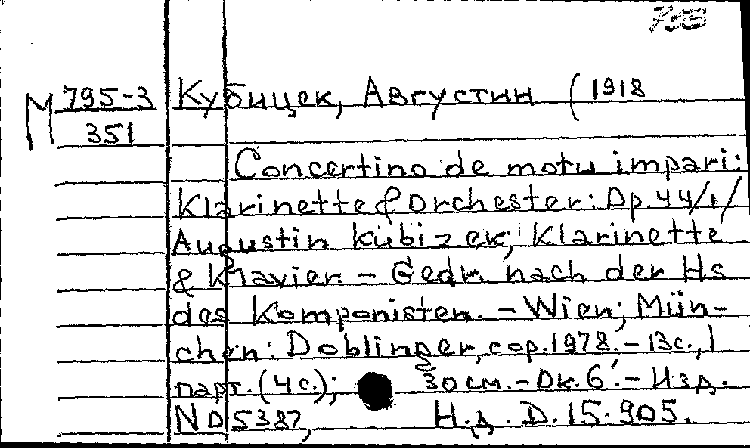 М 795-3
351
Кубицек, Августин (1918
Concertino de motu impari:
Klarinette & Orchester: Op. 44/1/
Augustin Kubizek; Klarinette
& Klavier. – Gedr. nach der Hs
des Komponisten. – Wien; Mün-
chen: Doblinger, cop. 1978. – 13 с., 1
парт. (4 с.); 30 см. – Ок. 6'. – Изд.
N D 5387, Н.д. D. 15.905.